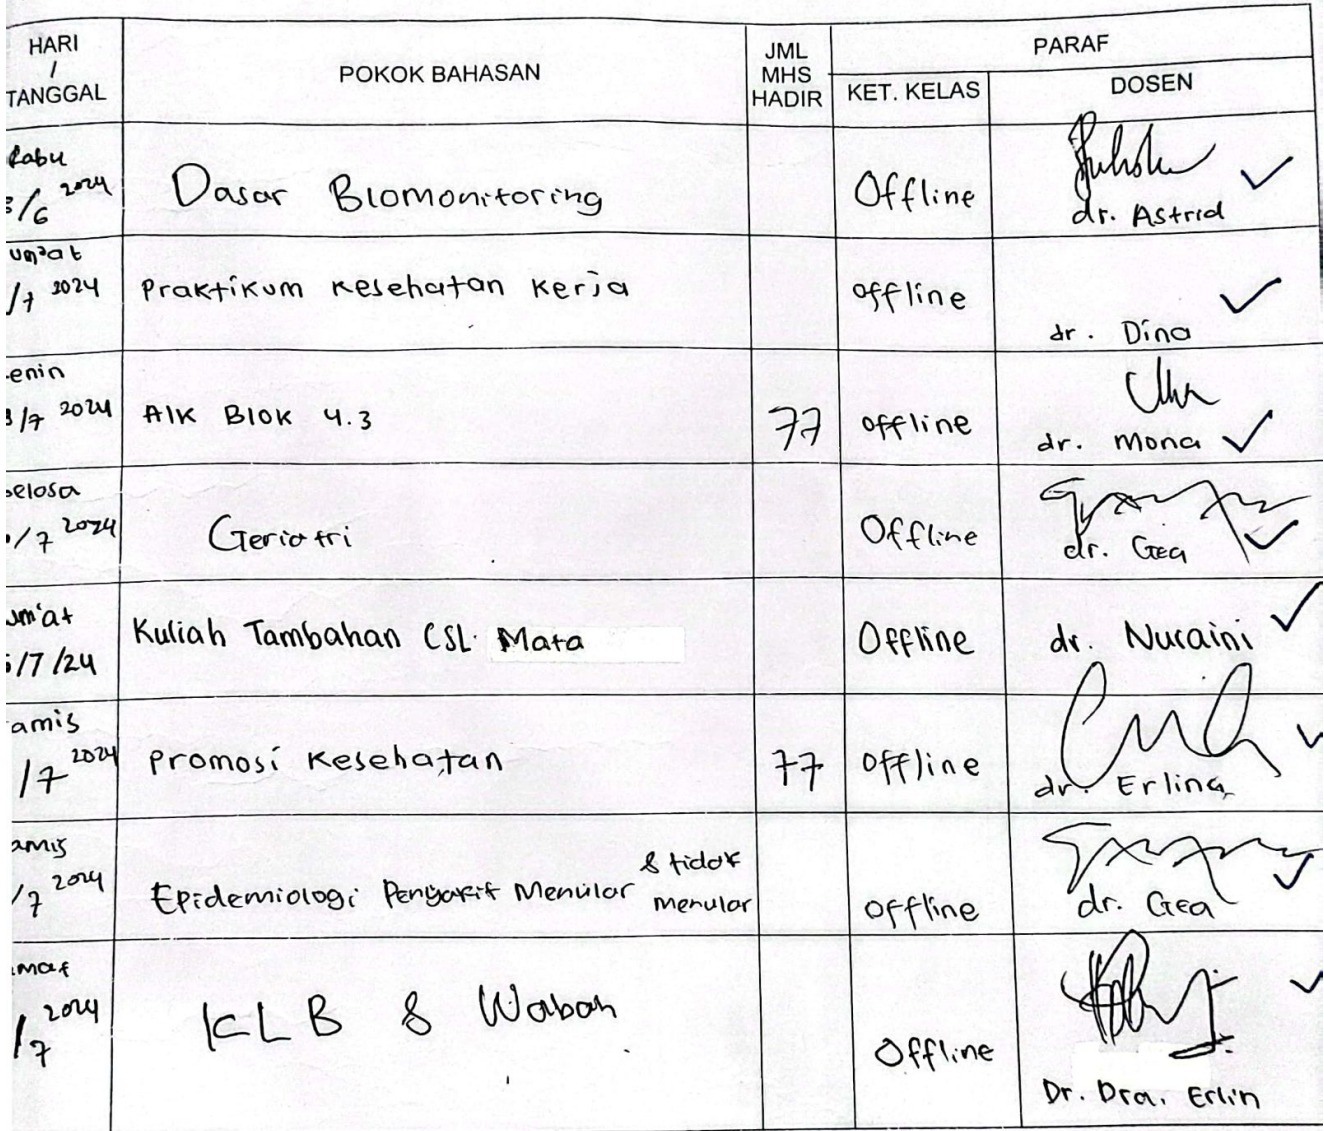 HARI
/
TANGGAL
POKOK BAHASAN
JML
MHS
HADIR
PARAF
KET. KELAS
DOSEN
Rabu
/6 2024
Dasar Biomonitoring
Offline
dr. Astrid
um'at
/7 2024
Praktikum Kesehatan Kerja
offline
dr. Dina
enin
/7 2024
AIK Blok 4.3
77
offline
dr. Mona
elasa
/7 2024
Geriatri
Offline
dr. Gea
um'at
/7/24
Kuliah Tambahan CSL. Mata
Offline
dr. Nuraini
amis
/7 2024
Promosi Kesehatan
77
Offline
dr. Erlina
amis
/7 2024
Epidemiologi Penyakit Menular & tidak
menular
offline
dr. Gea
mat
/7 2024
KLB & Wabah
Offline
Dr. Dra. Erlin